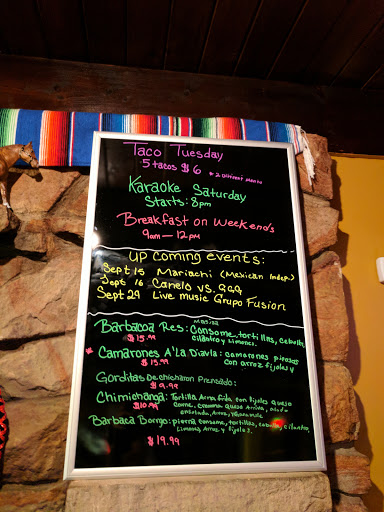 Taco Tuesday
5 tacos $6 * 2 Different Meats
Karaoke Saturday
Starts: 8pm
Breakfast on Weekends
9am - 12pm
UP Coming Events:
Sept 15 Mariachi (Mexican Indep.)
Sept 16 Canelo VS. GGG
Sept 29 Live music Grupo Fusion
Barbacoa Res: Consome, tortillas, cebolla,
$15.99 cilantro y Limones.
* Camarones A'La Diavla: camarones picosos
$15.99 con arroz fijoles y
Gorditas De chicharon Prensado:
$9.99
Chimichanga: Tortilla Arina frida con fijoles Queso
$10.99 Carne, Crema Queso Arriva, alado
ensalada, Arroz,
Barbaca Borrego: pierna, consome, tortillas, cebolla, cilantro,
Limones, Arroz y fijoles.
$19.99